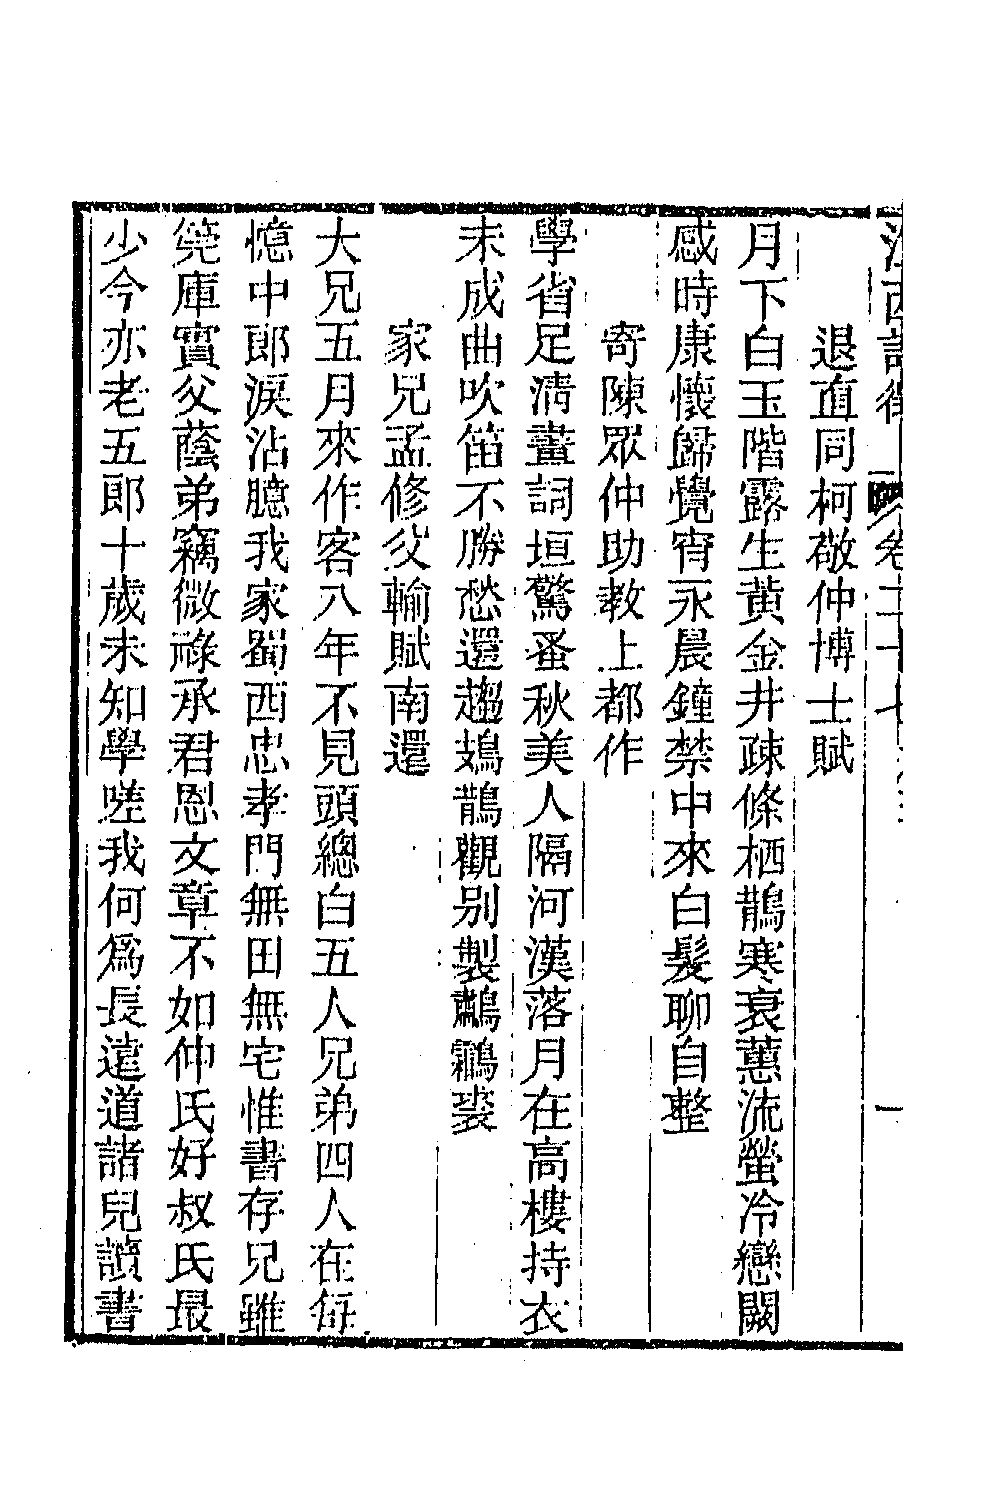 江西詩徵 卷二十七 一
退直同柯敬仲博士賦
月下白玉階露生黃金井疎條栖鵲寒衰蕙流螢冷戀闕
感時康懷歸覺宵永晨鐘禁中來白髮聊自整
寄陳眾仲助教上都作
學省足清晝詞垣驚蚤秋美人隔河漢落月在高樓持衣
未成曲吹笛不勝愁還趨鳷鵲觀别製鷫鸘裘
家兄孟修父輸賦南還
大兄五月來作客八年不見頭總白五人兄弟四人在每
憶中郎淚沾臆我家蜀西忠孝門無田無宅惟書存兄雖
筦庫實父蔭弟竊微祿承君恩文章不如仲氏好叔氏最
少今亦老五郎十歲未知學嗟我何爲長遠道諸兒讀書